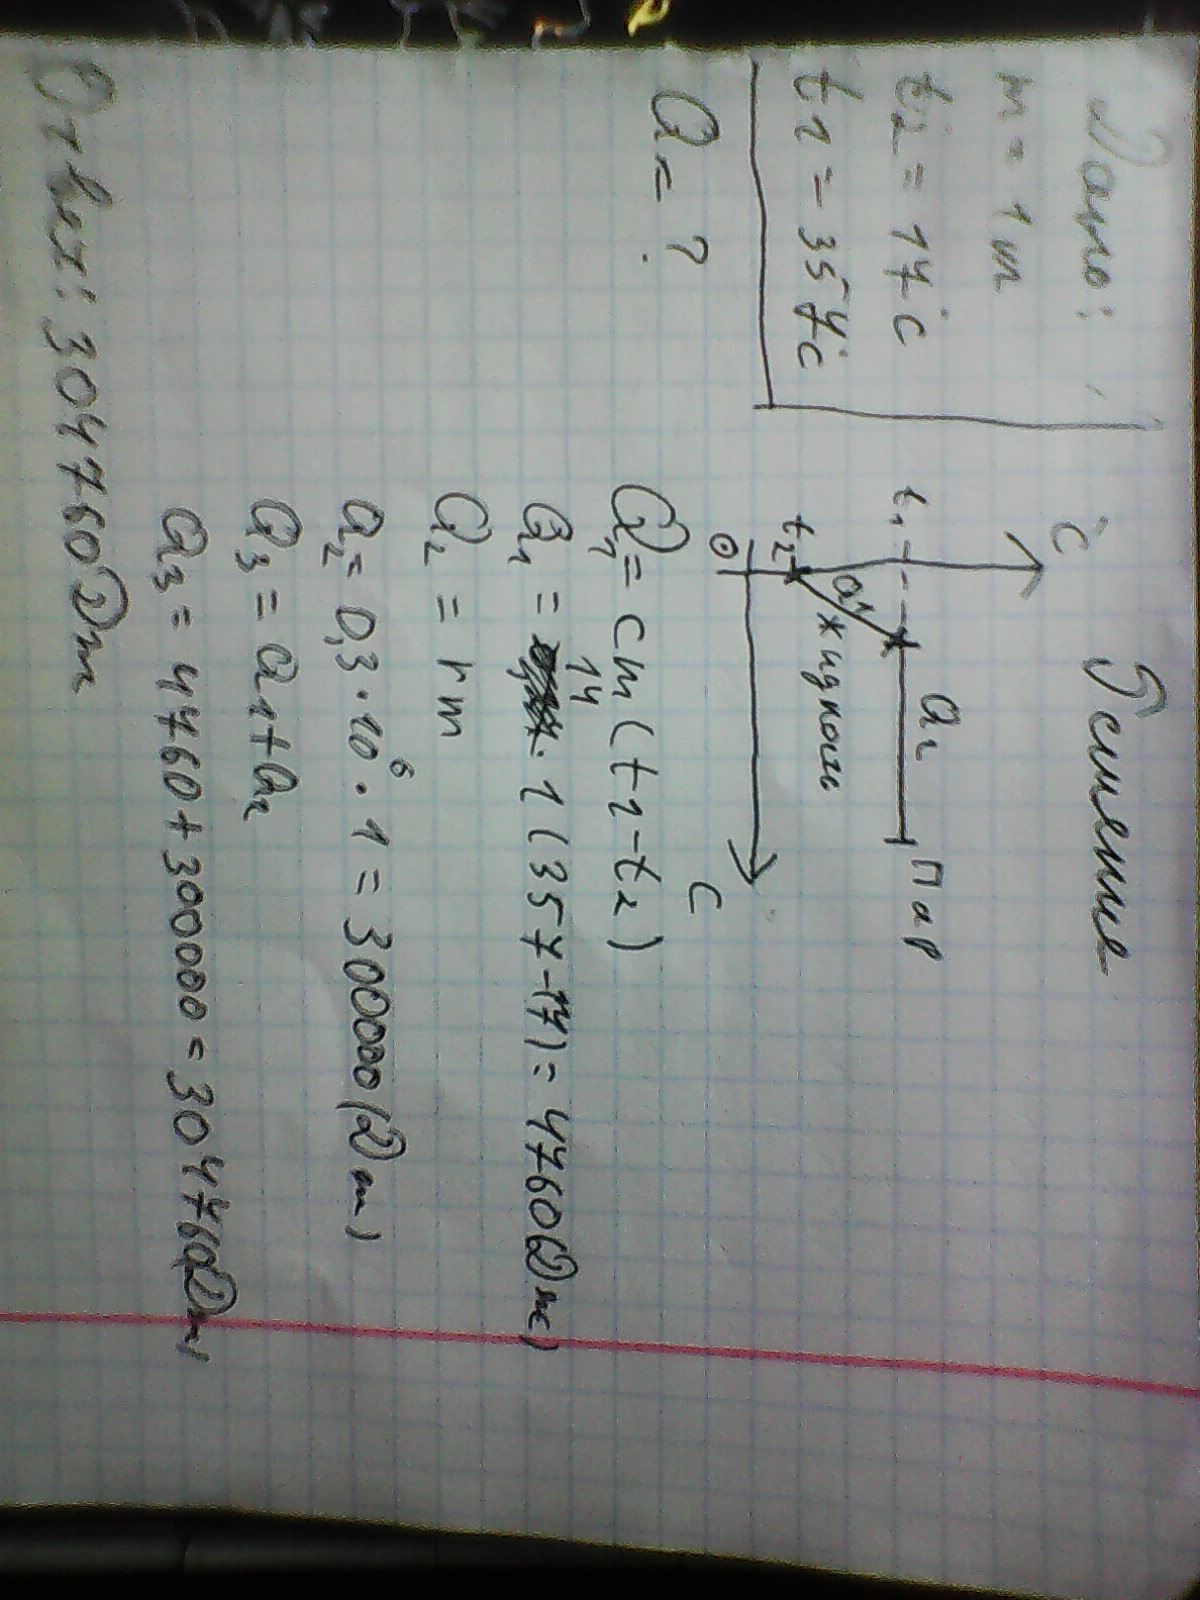 Дано:
m = 1 кг
t2 = 17°C
t1 = 357°C
Q = ?
Решение
°C
t1
Q2
Пар
Q1
жидкость
t2
0
C
Q1 = cm(t1-t2)
14
Q1 = · 1 (357-17) = 4760 (Дж)
Q2 = rm
Q2 = 0,3 · 10⁶ · 1 = 300000 (Дж)
Q3 = Q1+Q2
Q3 = 4760 + 300000 = 304760 (Дж)
Ответ: 304760 Дж